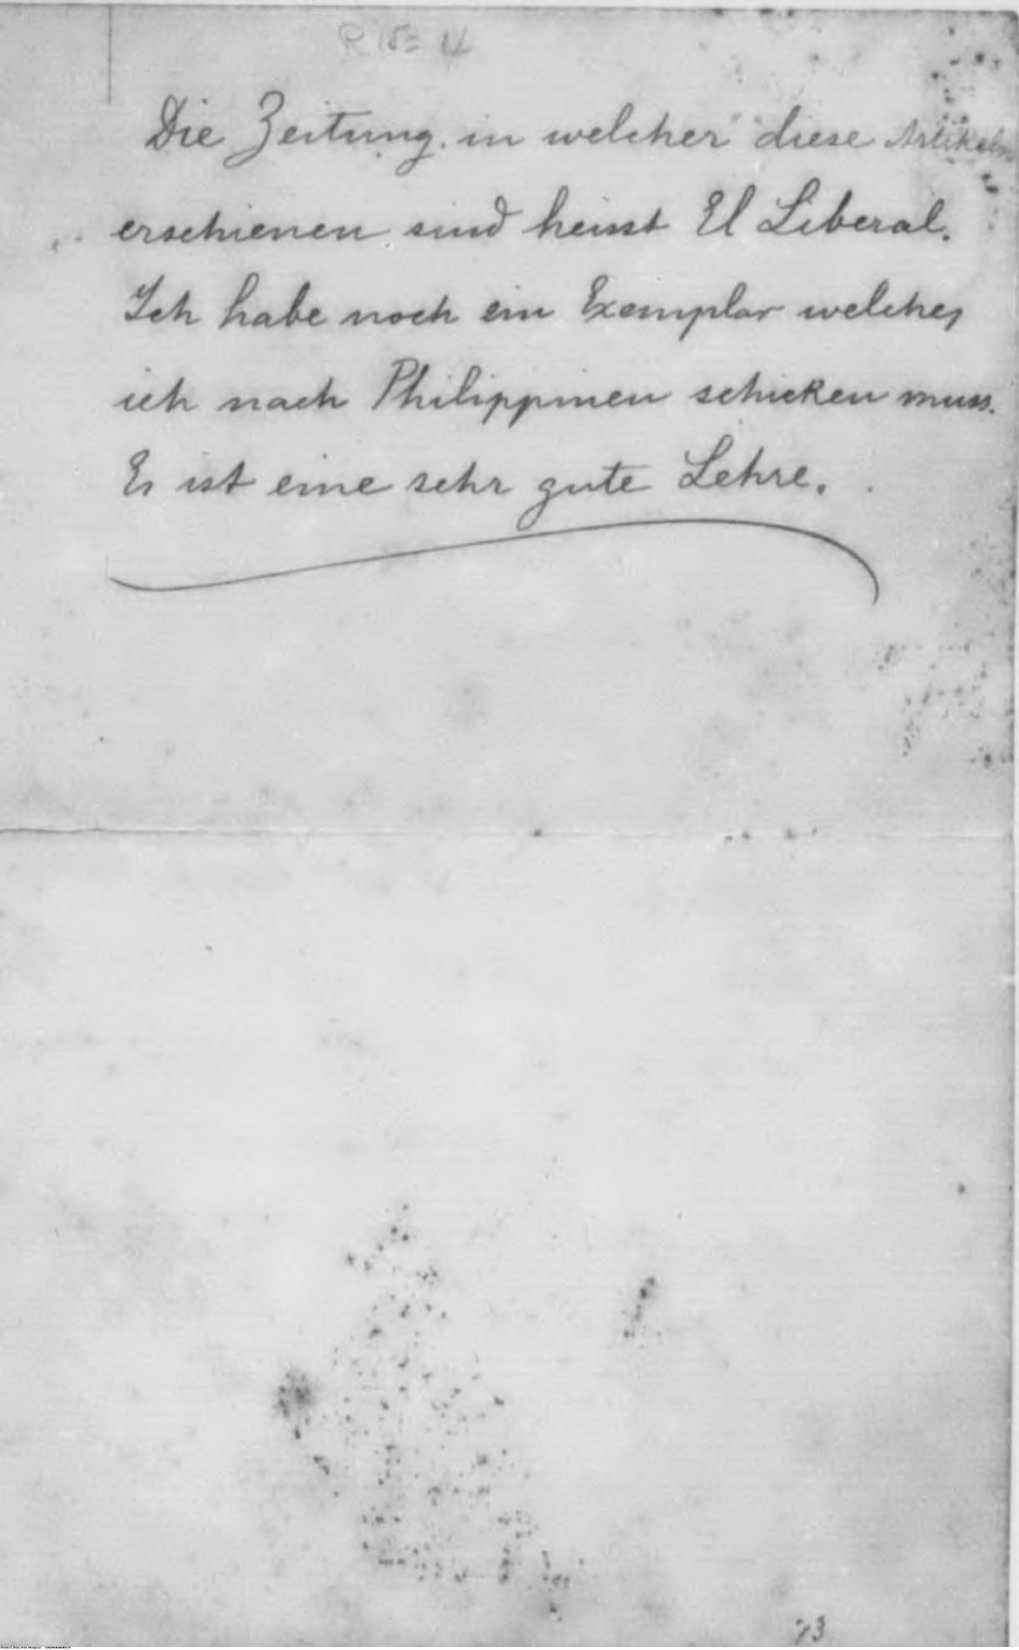 Die Zeitung in welcher diese Artikeln
erschienen sind heisst El Liberal.
Ich habe noch ein Exemplar welches
ich nach Philippinen schicken muss.
Es ist eine sehr gute Lehre.
73